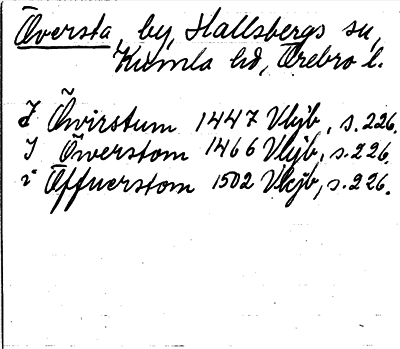 Översta, by, Hallsbergs sn,
Kumla hd, Örebro l.
I Öwirstum 1447 Vkjb, s. 226.
J Öwerstom 1466 Vkjb, s. 226.
i Öffuerstom 1502 Vkjb, s. 226.